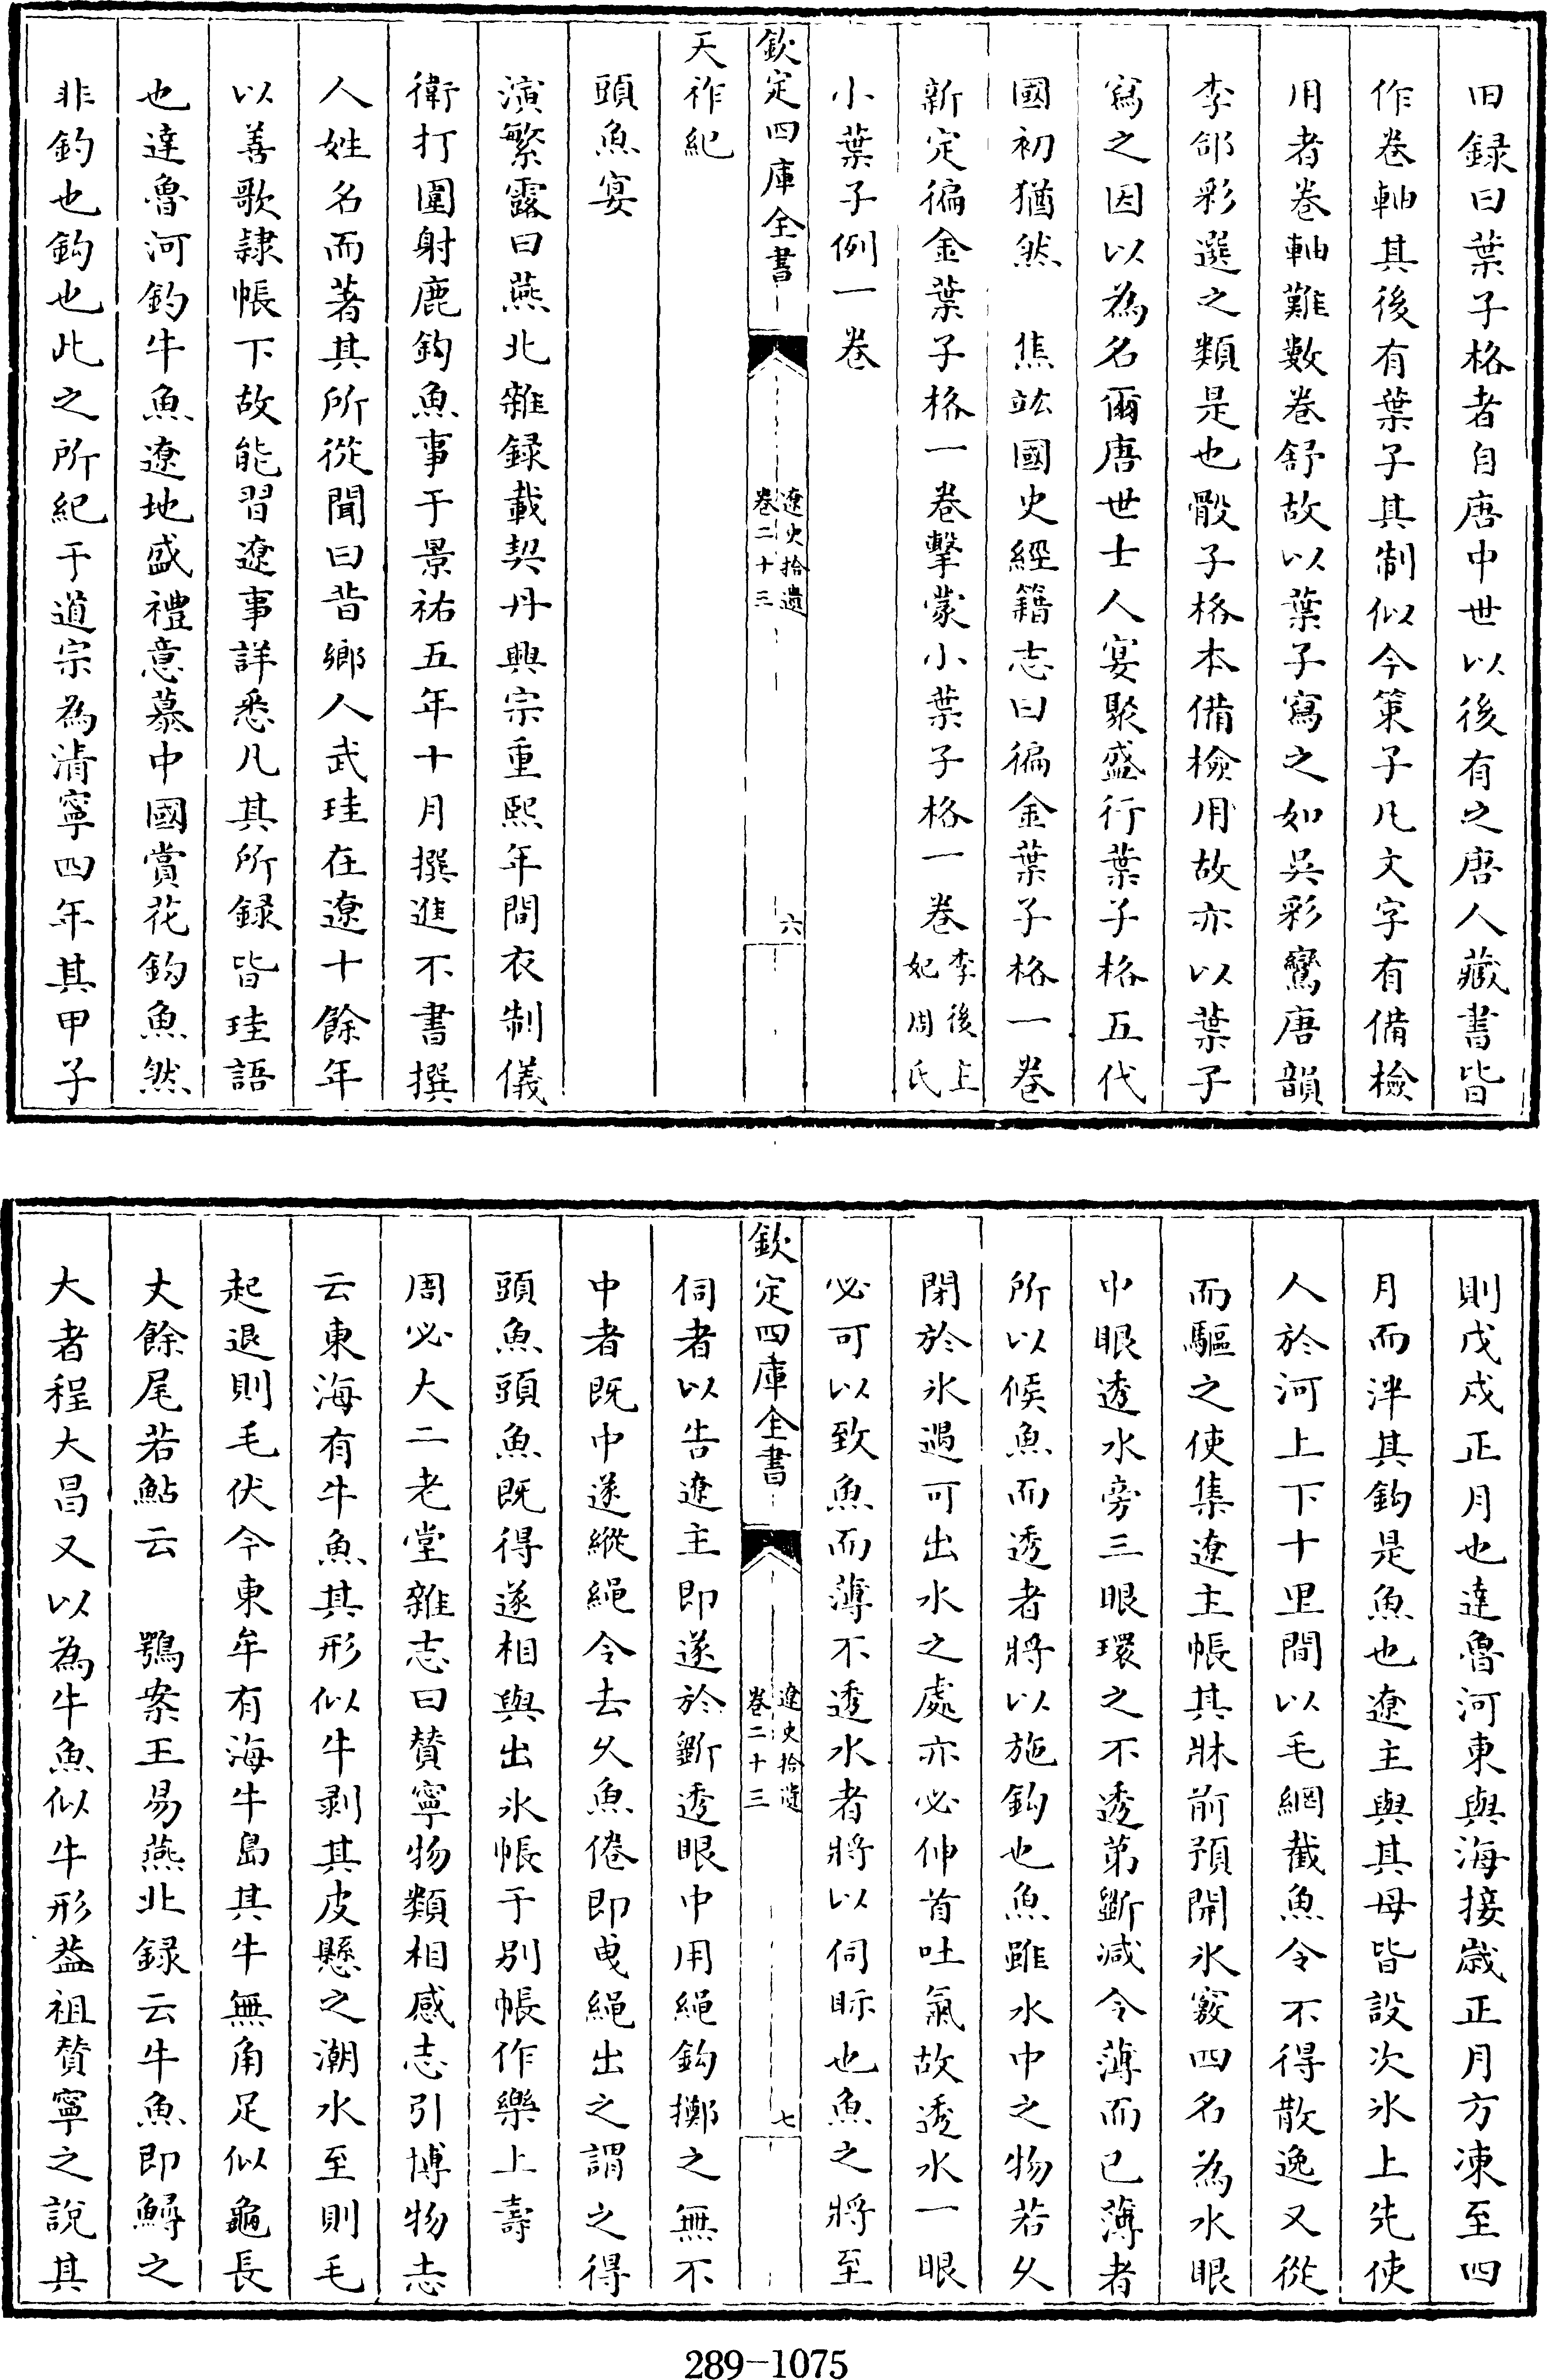 田録曰葉子格者自唐中世以後有之唐人藏書皆
作卷軸其後有葉子其制似今策子凡文字有備檢
用者卷軸難數卷舒故以葉子寫之如吳彩鸞唐韻
李郃彩選之類是也骰子格本備檢用故亦以葉子
寫之因以為名爾唐世士人宴聚盛行葉子格五代
國初猶然　焦竑國史經籍志曰徧金葉子格一卷
新定徧金葉子格一卷擊蒙小葉子格一卷李後上妃周氏
小葉子例一卷
欽定四庫全書
遼史拾遺
卷二十三
六
天祚紀
頭魚宴
演繁露曰燕北雜録載契丹興宗重熙年間衣制儀
衛打圍射鹿鈎魚事于景祐五年十月撰進不書撰
人姓名而著其所從聞曰昔鄉人武珪在遼十餘年
以善歌隷帳下故能習遼事詳悉凡其所録皆珪語
也達魯河釣牛魚遼地盛禮意慕中國賞花鈎魚然
非釣也鈎也此之所紀于道宗為清寧四年其甲子
則戊戌正月也達魯河東與海接歲正月方凍至四
月而泮其鈎是魚也遼主與其母皆設次氷上先使
人於河上下十里間以毛網截魚令不得散逸又從
而驅之使集遼主帳其牀前預開氷竅四名為水眼
中眼透水旁三眼環之不透第斵減令薄而已薄者
所以候魚而透者將以施鈎也魚雖水中之物若乆
閉於氷遇可出水之處亦必伸首吐氣故透水一眼
必可以致魚而薄不透水者將以伺眎也魚之將至
欽定四庫全書
遼史拾遺
卷二十三
七
伺者以告遼主即遂於斵透眼中用繩鈎擲之無不
中者既中遂縱繩令去乆魚倦即曳繩出之謂之得
頭魚頭魚既得遂相與出氷帳于别帳作樂上壽
周必大二老堂雜志曰賛寧物類相感志引博物志
云東海有牛魚其形似牛剥其皮懸之潮水至則毛
起退則毛伏今東牟有海牛島其牛無角足似龜長
丈餘尾若鮎云　鶚案王易燕北録云牛魚即鱘之
大者程大昌又以為牛魚似牛形葢祖賛寧之說其
289-1075